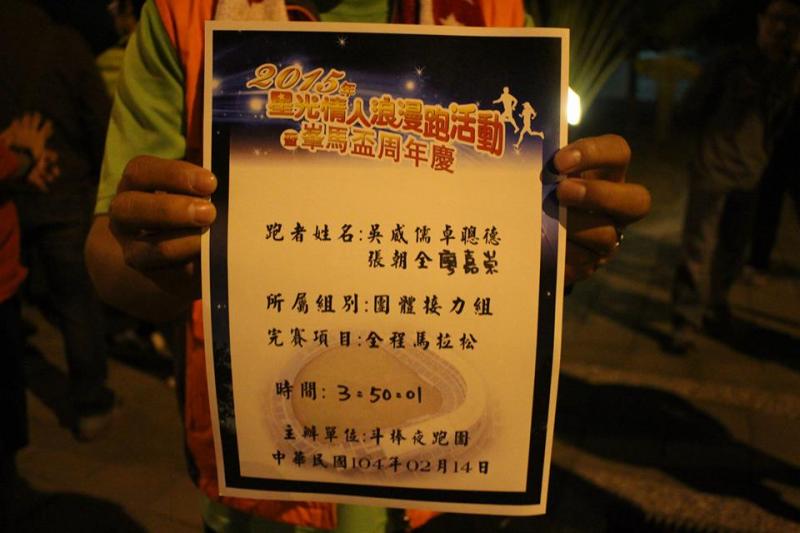 2015年
星光情人浪漫跑活動
暨峯馬盃周年慶
跑者姓名:吳威儒卓聰德
張朝全廖嘉崇
所屬組別:團體接力組
完賽項目:全程馬拉松
時間: 3:50:01
主辦單位:斗棒夜跑團
中華民國104年02月14日